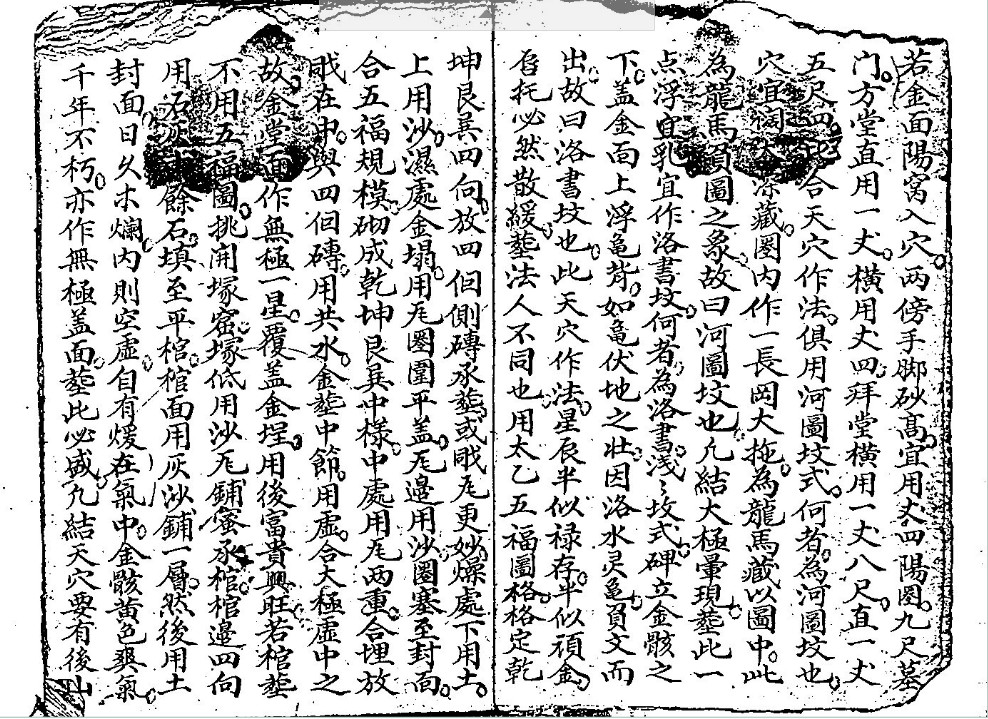 若金面陽窩入穴两傍手脚砂髙宜用丈四陽圏九尺墓
门方堂直用一丈横用丈四拜堂横用一丈八尺直一丈
五尺四合天穴作法俱用河圖坟式何者為河圖坟也
穴宜深藏圏内作一長岡大拖為龍馬藏以圖中此
為龍馬負圖之象故曰河圖坟也凢結大極暈現塟此一
点浮宜乳宜作洛書坟何者為洛書浅〻坟式碑立金骸之
下盖金面上浮亀背如亀伏地之壮因洛水灵亀負文而
出故曰洛書坟也此天穴作法星辰半似禄存半似頑金
托必然散緩塟法人不同也用太乙五福圖格格定乾
坤艮巽四向放四佪側磚承塟或戙瓦更妙燥處下用土
上用沙濕處金塌用瓦圏圍平盖瓦邉用沙圏塞至封面
合五福規模砌成乾坤艮巽中様中處用瓦两重合埋放
戙在中與四佪磚用共水金塟中節用虚合大極虚中之
故金堂面作無極一星覆盖金埕用後富貴興旺若棺塟
不用五福圖挑開塚窑塚低用沙瓦鋪蜜承棺棺邉四向
用石灰餘石填至平棺棺面用灰沙鋪一層然後用土
封面日久木爛内則空虚自有煖在氣中金骸黄色巽氣
千年不朽亦作無極盖面塟此必盛凢結天穴要有後山